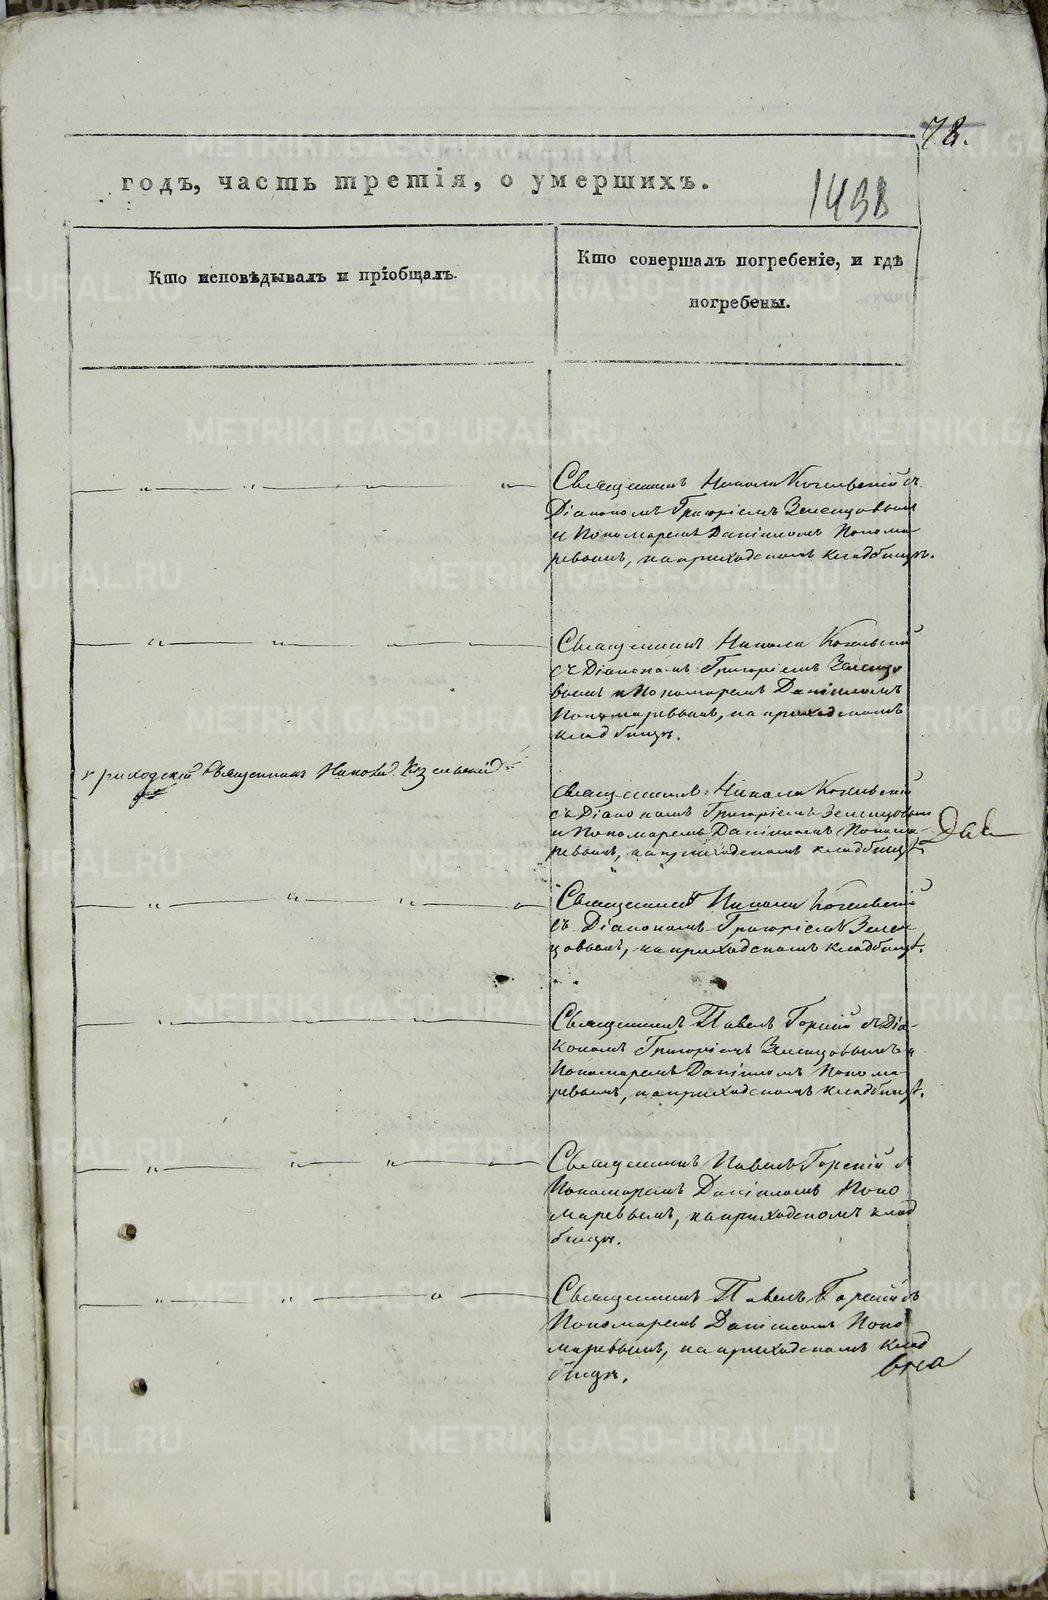 78.
годъ, часть третія, о умершихъ.
1498
Кто исповѣдывалъ и пріобщалъ.
Кто совершалъ погребеніе, и гдѣ
погребены.
Священникъ Никола Козельскій съ
Діакономъ Григоріемъ Зеленцовымъ
и Пономаремъ Даніиломъ Понома-
ревымъ, на приходскомъ кладбищѣ.
Священникъ Никола Козельскій
съ Діакономъ Григоріемъ Зеленцо
вымъ и Пономаремъ Даніиломъ
Пономаревымъ, на приходскомъ
кладбищѣ.
приходскій священникъ Никола Козельскій
Священникъ Никола Козельскій
съ Діакономъ Григоріемъ Зеленцовымъ
и Пономаремъ Даніиломъ Понома-
ревымъ, на приходскомъ кладбищѣ
Священникъ Никола Козельскій
съ Діакономъ Григоріемъ Зелен-
цовымъ, на приходскомъ кладбищѣ.
Священникъ Павелъ Горный съ Діа-
кономъ Григоріемъ Зеленцовымъ и
Пономаремъ Даніиломъ Понома-
ревымъ, на приходскомъ кладбищѣ.
Священникъ Павелъ Горный съ
Пономаремъ Даніиломъ Поно
маревымъ, на приходскомъ клад
бищѣ.
Священникъ Павелъ Горный съ
Пономаремъ Даніиломъ Поно
маревымъ, на приходскомъ клад
бищѣ.
METRIKI.GASO-URAL.RU